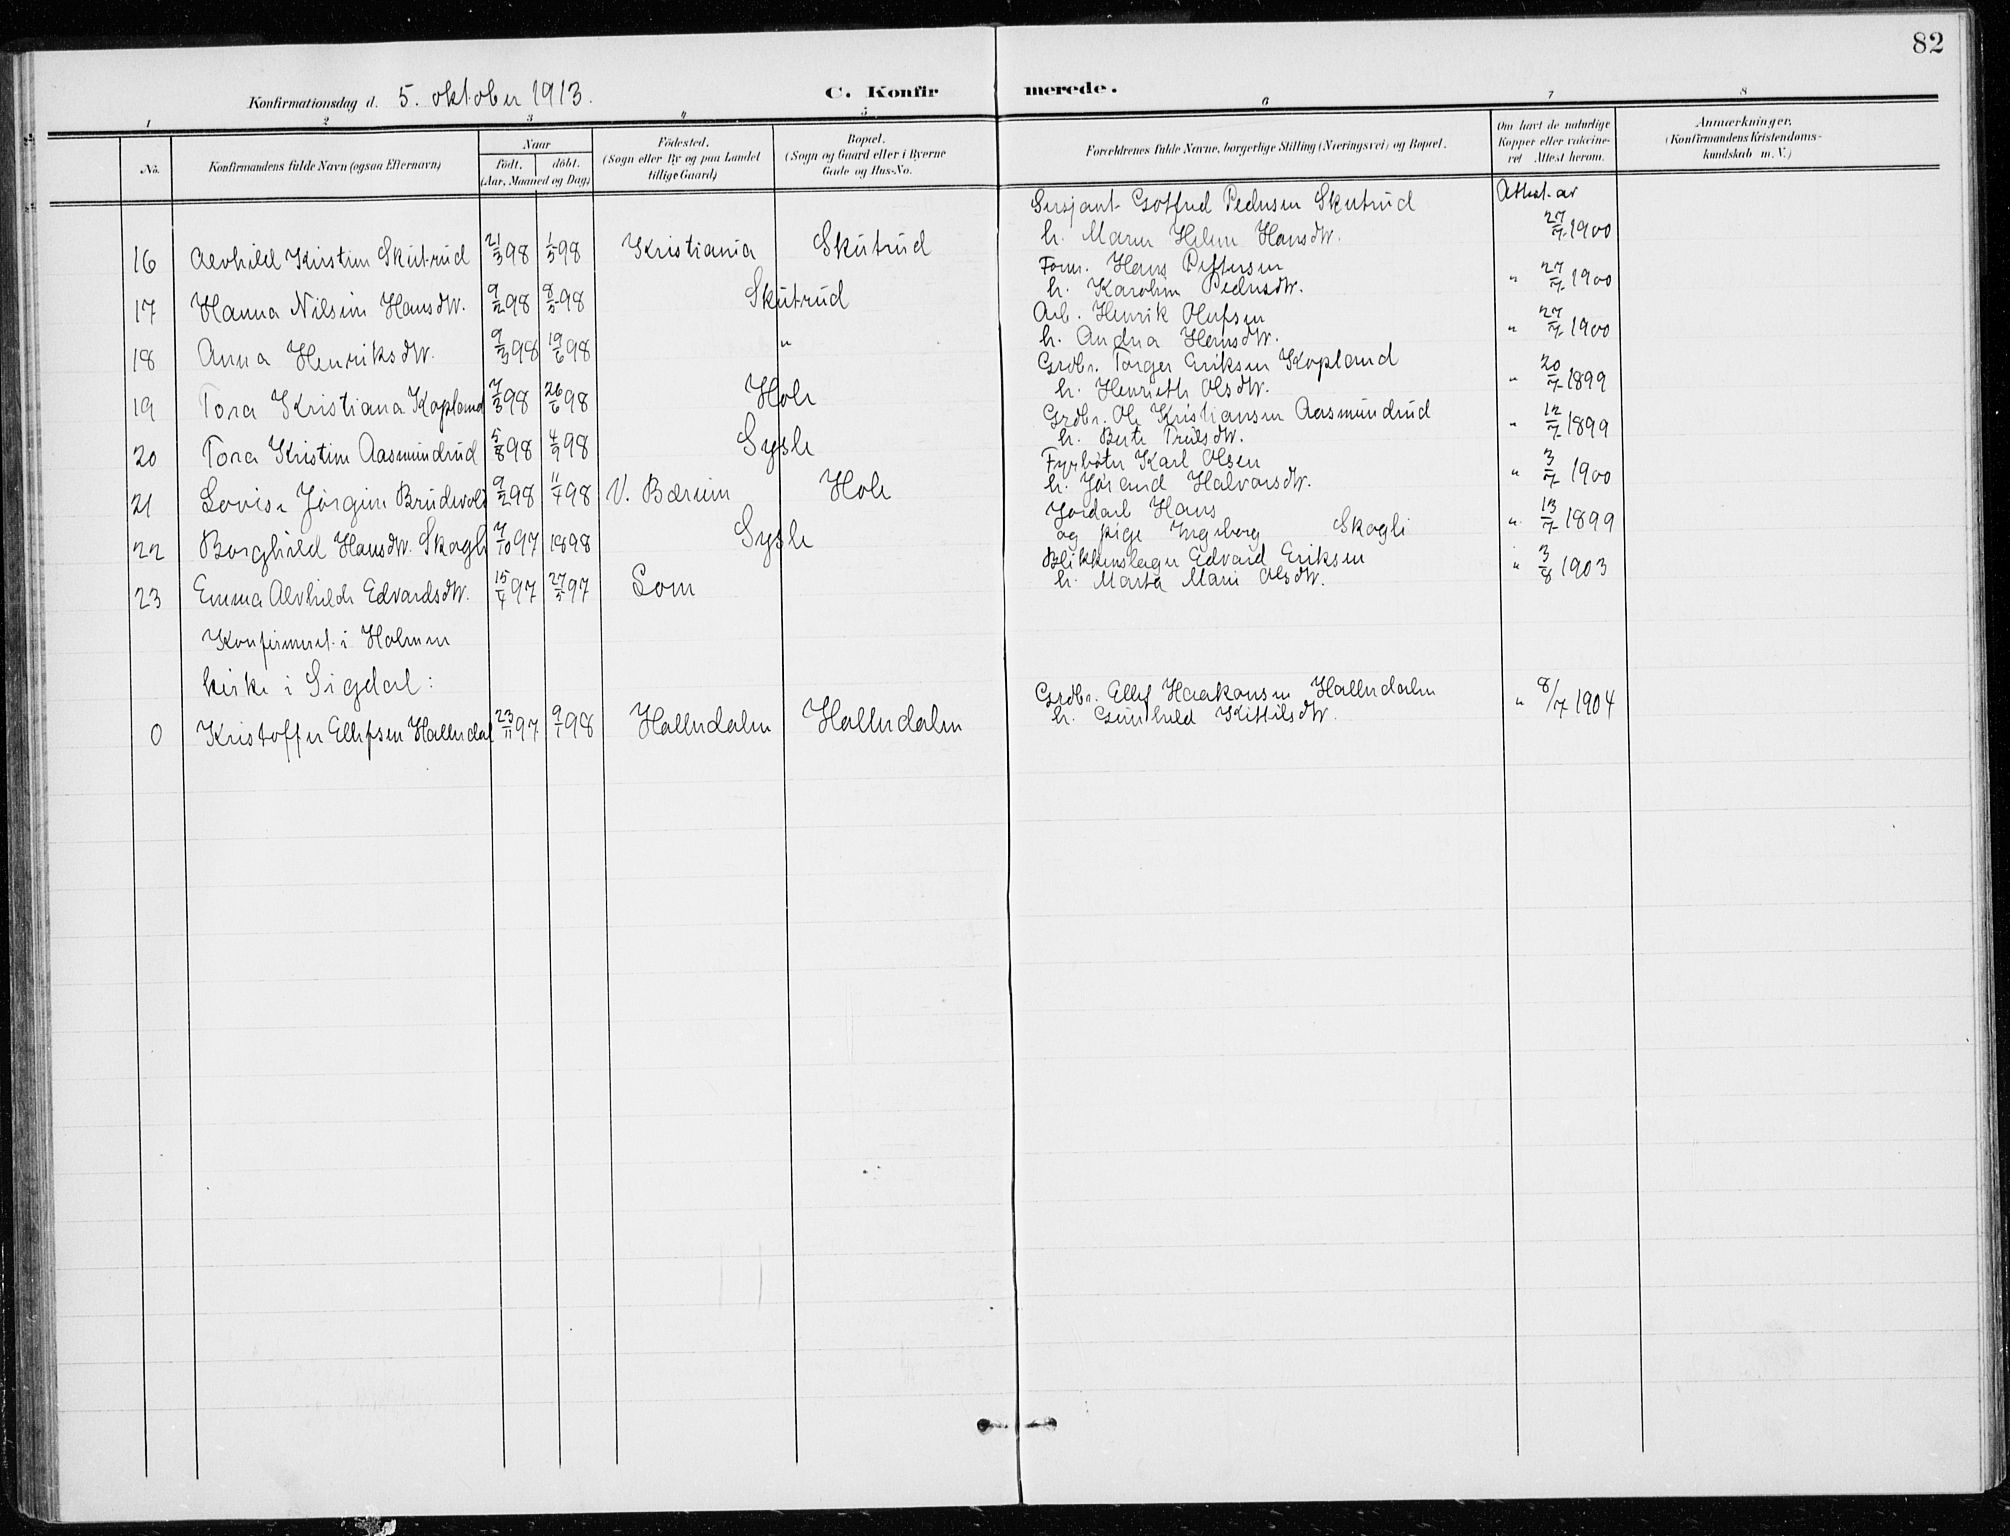 82
Konfirmationsdag d. 5. oktober 1913. C. Konfirmerede.
1 2 3 4 5 6 7 8
No. Konfirmandens fulde Navn (ogsaa Efternavn) Naar født. døbt. (Aar, Maaned og Dag) Födested. (Sogn eller By og paa Landet tillige Gaard) Bopæl. (Sogn og Gaard eller i Byerne Gade og Hus-No. Forældrenes fulde Navne, borgerlige Stilling (Næringsvei) og Bopæl. Om havt de naturlige Kopper eller vaccineret Attest herom. Anmærkninger. (Konfirmandens Kristendomskundskab m. V.)
Sersjant Gotfred Pedersen Skutrud Attest av
16 Alvhild Kirstine Skutrud 21/3 98 1/5 98 Kristiania Skutrud h. Maren Helene Hansdtr. 27/7 1900
Form. Hans Pettersen
17 Hanna Nilsine Hansdtr. 9/2 98 8/5 98 Skutrud h. Karoline Pedersdtr. " 27/7 1900
Arb. Henrik Olufsen
18 Anna Henriksdtr. 9/3 98 19/6 98 " h. Andrea Hansdtr. " 27/7 1900
Grdbr. Torger Eriksen Kopland
19 Tora Kristiana Kopland 7/3 98 26/6 98 Hole h. Henriette Olsdtr. " 20/7 1899
Grdbr. Ole Kristiansen Aasmundrud
20 Tora Kristine Aasmundrud 5/8 98 4/9 98 Sysle h. Berte Trulsdtr. " 12/7 1899
Fyrbøter Karl Olsen
21 Lovise Jørgine Brudevold 9/2 98 11/4 98 V. Bærum Hole h. Jørand Halvorsdtr. " 3/7 1900
Jordarb. Hans
22 Borghild Hansdtr. Skogli 7/10 97 1898 Sysle og pige Ingeborg Skogli " 13/7 1899
Blikkenslager Edvard Eriksen
23 Emma Alvhilde Edvardsdtr. 15/4 97 27/5 97 Lom h. Marta Marie Olsdtr. " 3/8 1903
Konfirmeret i Holmen
kirke i Sigdal:
Grdbr. Ellef Haakonsen Hallerdalen
0 Kristoffer Ellefsen Hallerdal 23/11 97 9/1 98 Hallerdalen Hallerdalen h. Gunhild Kittilsdtr. " 8/7 1904